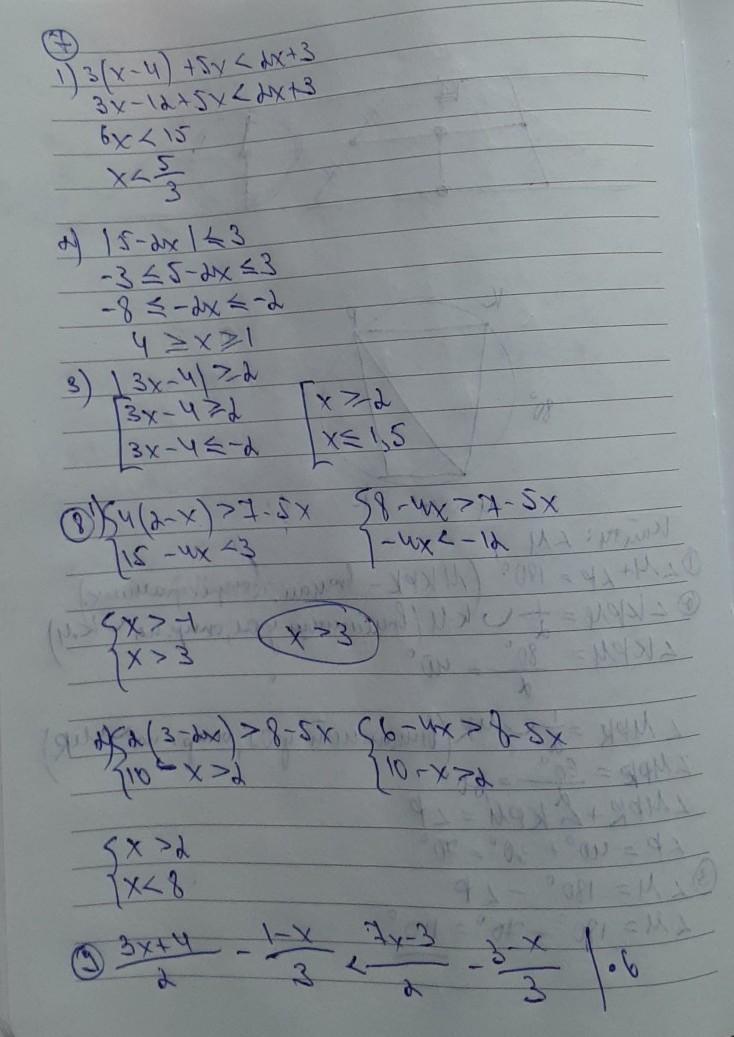 7
1) 3(x-4) +5x < 2x+3
3x-12+5x < 2x+3
6x < 15
x < 5/3
2) |5-2x| ≤ 3
-3 ≤ 5-2x ≤ 3
-8 ≤ -2x ≤ -2
4 ≥ x ≥ 1
3) |3x-4| ≥ 2
[3x-4 ≥ 2 [x ≥ 2
[3x-4 ≤ -2 [x ≤ 1,5
8 1) {4(2-x) > 7-5x {8-4x > 7-5x
{15-4x < 3 {-4x < -12
{x > -1 x > 3
{x > 3
2) {2(3-2x) > 8-5x {6-4x > 8-5x
{10-x > 2 {10-x > 2
{x > 2
{x < 8
9 (3x+4)/2 - (1-x)/3 < (7x-3)/2 - (3-x)/3 | ·6